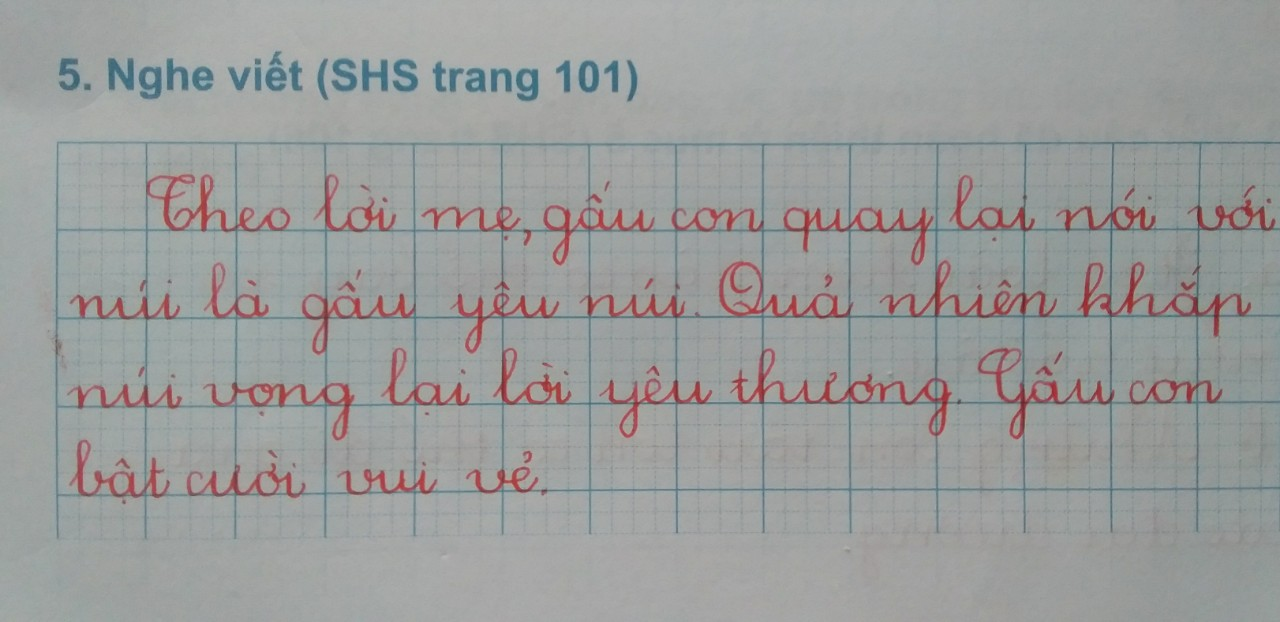 5. Nghe viết (SHS trang 101)
Theo lời mẹ, gấu con quay lại nói với
núi là gấu yêu núi. Quả nhiên khắp
núi vọng lại lời yêu thương. Gấu con
bật cười vui vẻ.